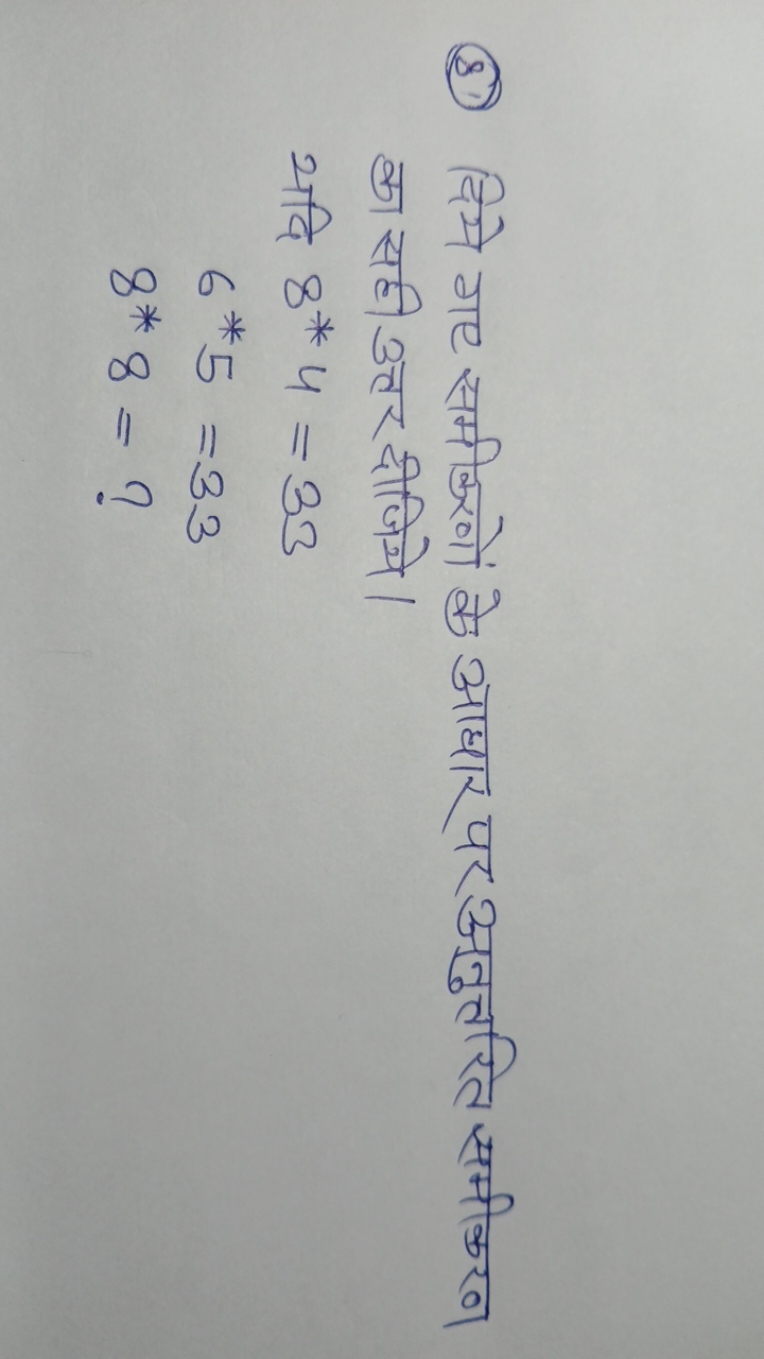 8. दिये गए समीकरणों के आधार पर अनुत्तरित समीकरण
का सही उत्तर दीजिये।
यदि 8*4 = 33
6*5 = 33
8*8 = ?